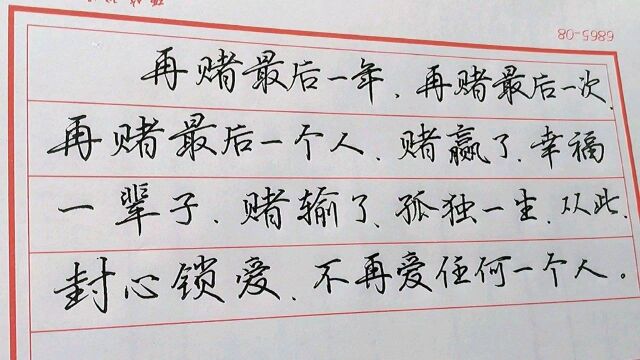 再赌最后一年、再赌最后一次、
再赌最后一个人、赌赢了、幸福
一辈子、赌输了、孤独一生、从此、
封心锁爱、不再爱任何一个人。